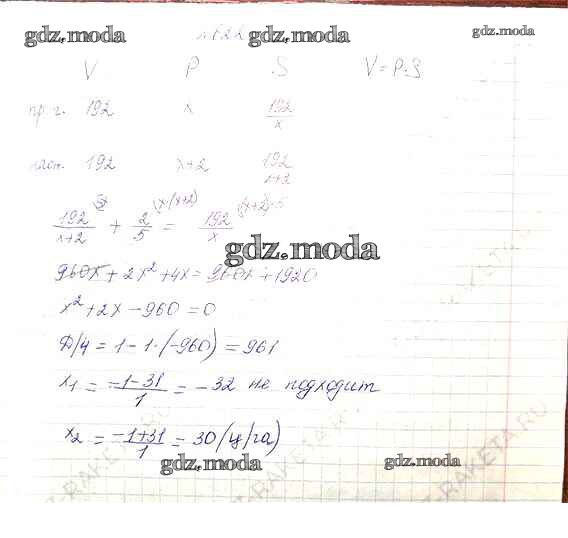 gdz.moda gdz.moda gdz.moda
V P S V=P·S
пр. г. 192 x 192/x
наст. 192 x+2 192/x+2
192/x+2 + 2/5 = 192/x
gdz.moda
960x + 2x² + 4x = 960x + 1920
x² + 2x - 960 = 0
Д/4 = 1 - 1·(-960) = 961
x₁ = -1-31/1 = -32 не подходит
x₂ = -1+31/1 = 30 (ц/га)
gdz.moda gdz.moda